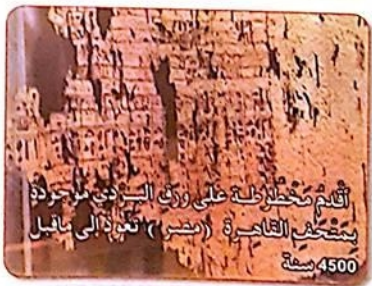 أقدم مخطوطة على ورق البردي موجودة
بمتحف القاهرة (مصر) تعود إلى ماقبل
4500 سنة